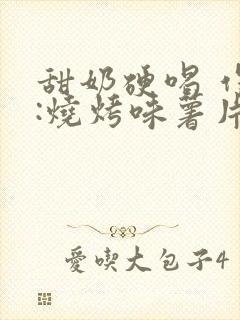 甜奶硬喝
:燒烤味薯片
愛喫大包子4